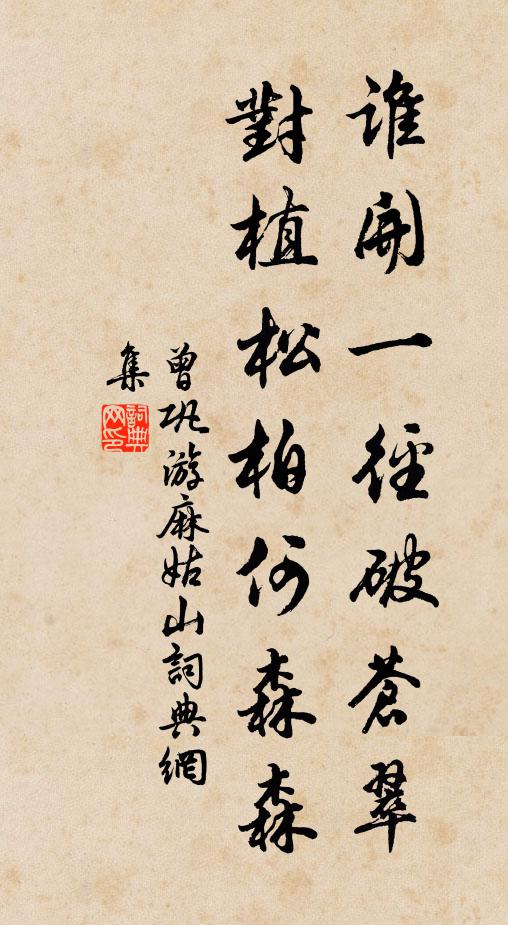 誰開一徑破蒼翠
對植松柏何森森
曾巩游麻姑山詞典網
集
詞典
网印